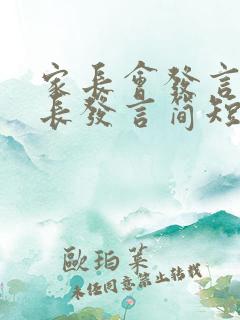 家長會發言
長發言简短
歐珀莱
未经同意禁止转载